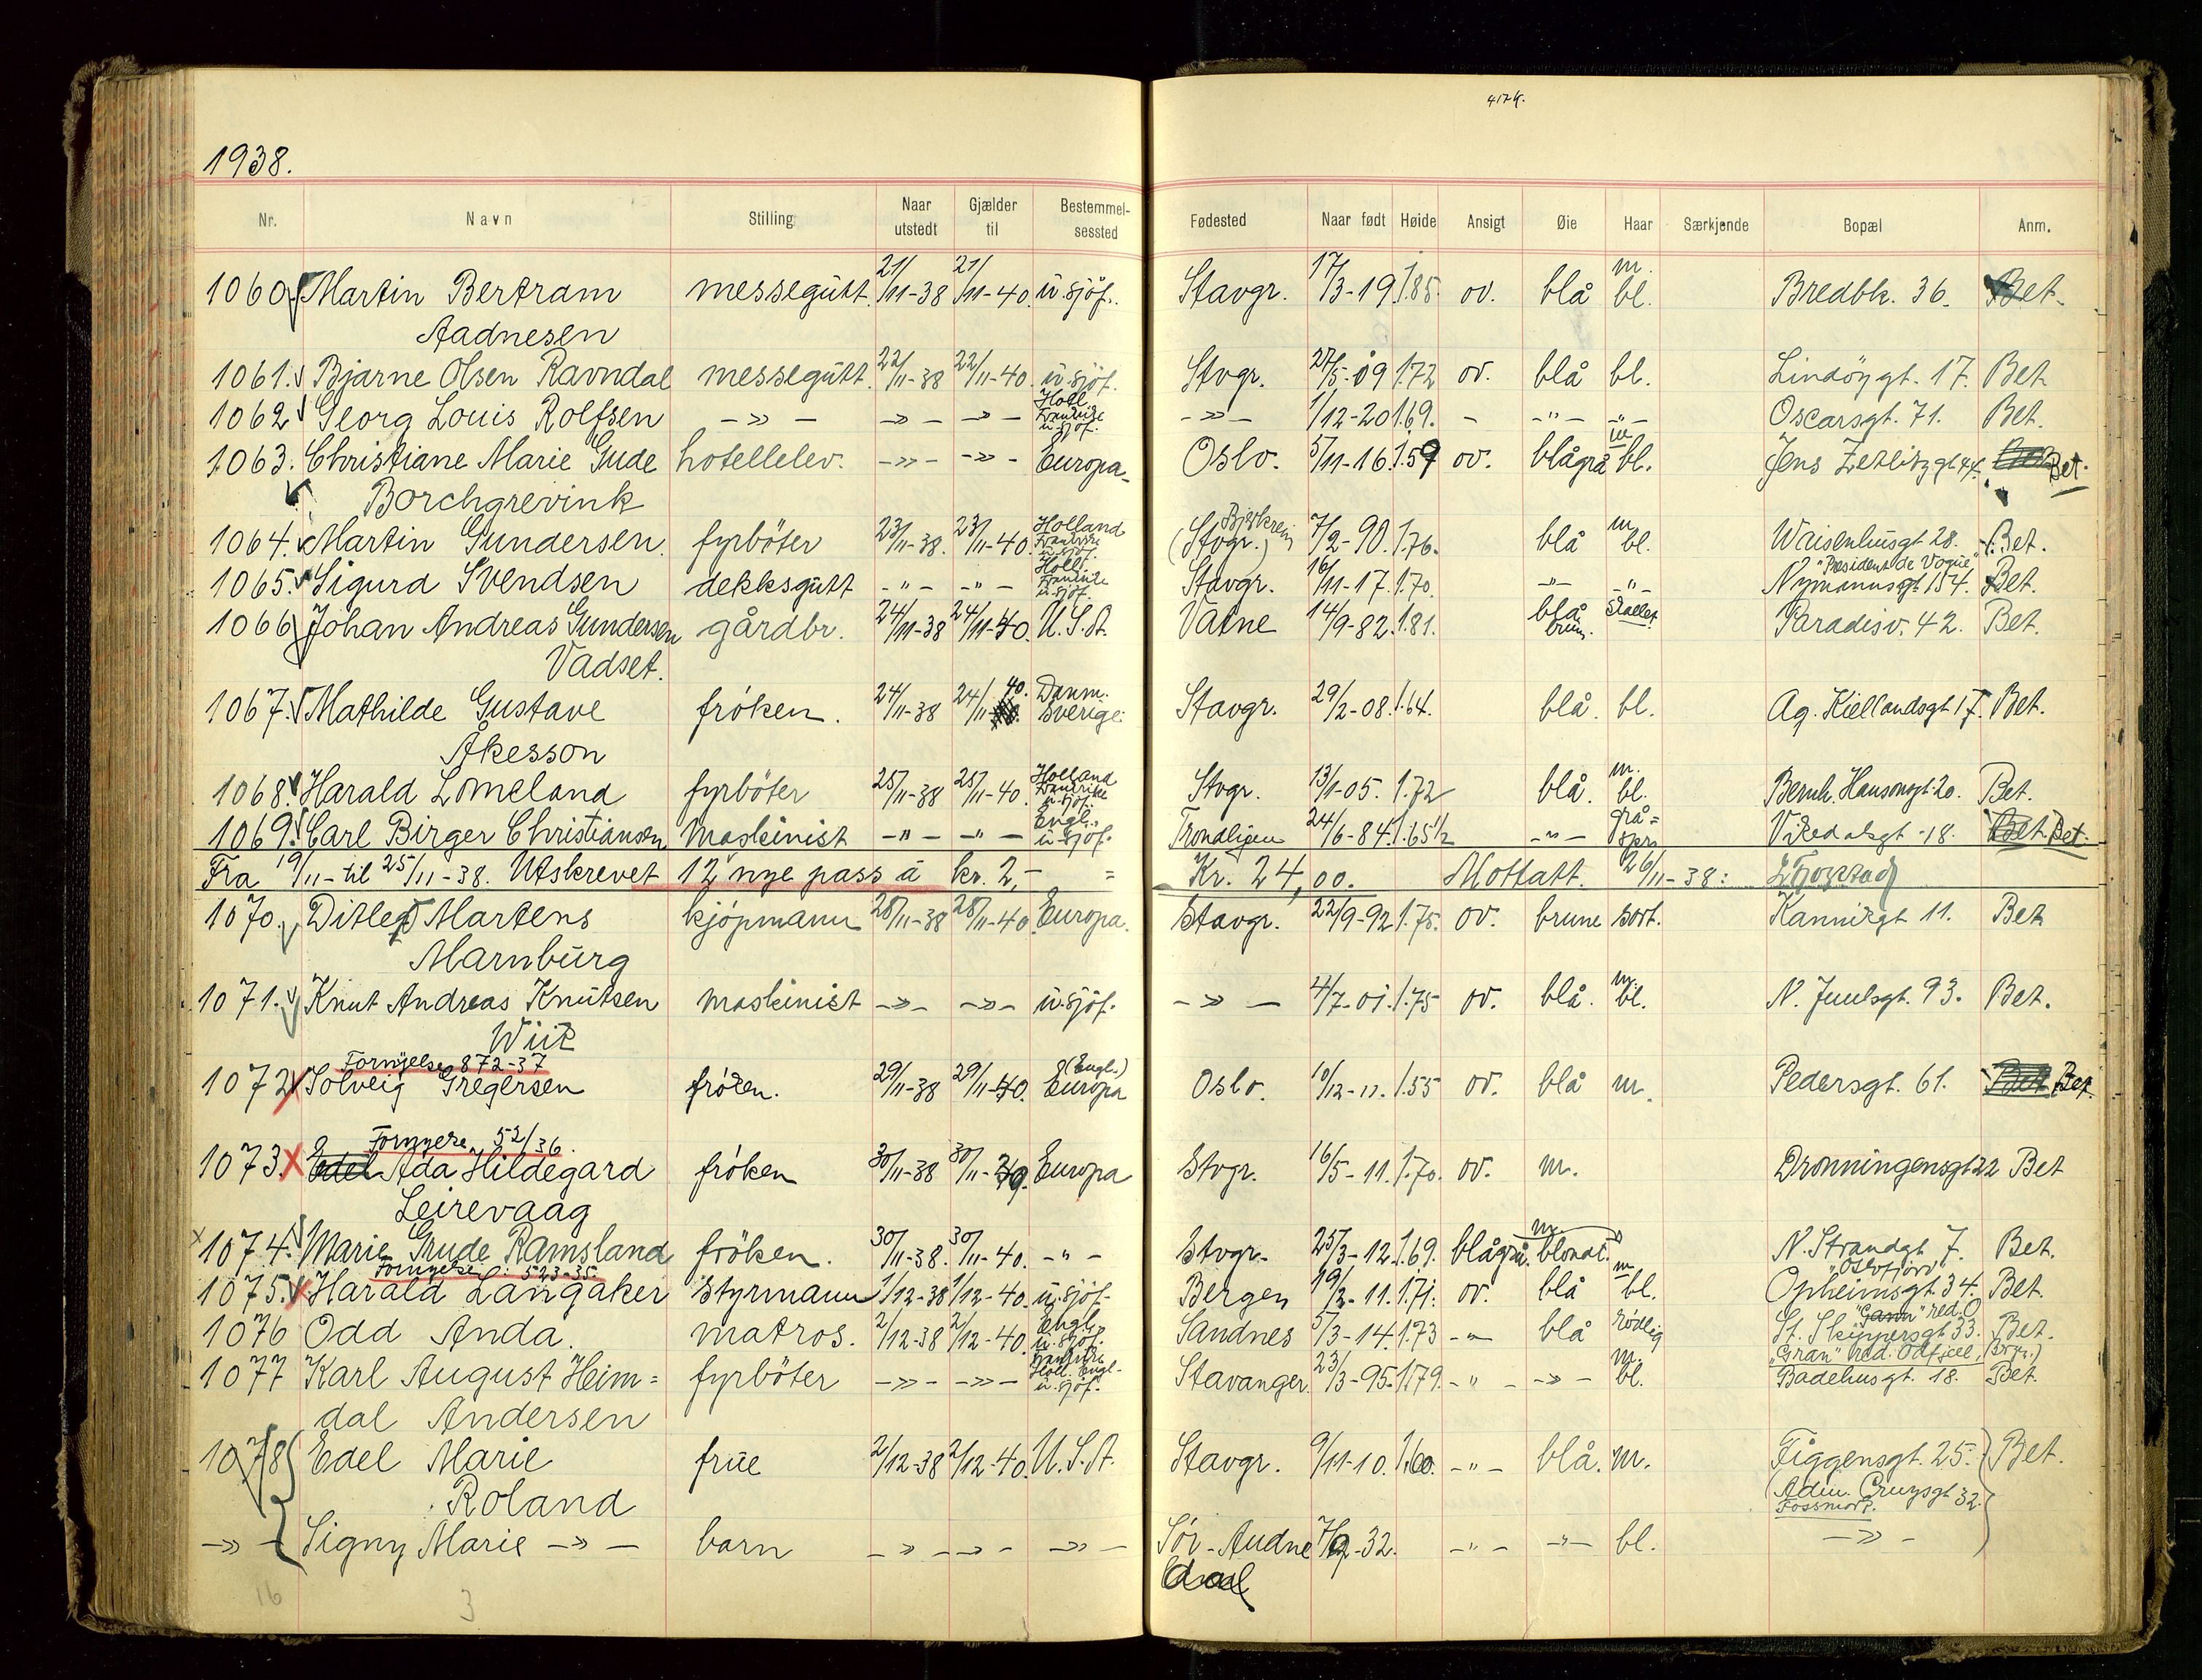 417 k.
1938.
Nr. Navn Stilling Naar utstedt Gjælder til Bestemmelsessted Fødested Naar født Høide Ansigt Øie Haar Særkjende Bopæl Anm.
1060 Martin Bertram messegutt. 21/11-38 21/11-40. u. sjöf. Stavgr. 17/3-19 1.85. ov. blå m. bl. Bredbk. 36. Bet.
Aadnesen
1061. Bjarne Olsen Ravndal messegutt. 22/11-38 22/11-40. u. sjöf. Stvgr. 27/5-09 1.72 ov. blå bl. Lindöygt. 17. Bet.
1062 Georg Louis Rolfsen -»- -»- -»- Holl. Frankrike u. sjöf. -»- 1/12-20 1.69. - -"- -"- Oscarsgt. 71. Bet.
1063. Christiane Marie Gude hotellelev. -»- -»- Europa Oslo. 5/11-16 1.59 ov. blågrå bl. Jens Zetlitzgt 44. Bet.
Borchgrevink
1064. Martin Gundersen. fyrböter 23/11-38. 23/11-40. Holland Frankrike u. sjöf. (Stvgr.) Bjerkreim 7/2-90. 1.76. blå m. bl. Waisenhusgt 28. Bet.
1065. Sigurd Svendsen dekksgutt -"- -"- Holl. Frankrike u. sjöf. Stavgr. 16/11-17. 1.70. -"- -"- "President de Vogue" Nymannsgt. 154. Bet.
1066 Johan Andreas Gundersen gårdbr. 24/11-38 24/11-40. U.S.A. Vatne 14/9-82. 1.81. blå brun. skallet Paradisv. 42. Bet.
Vadset.
1067. Mathilde Gustave fröken. 24/11-38 24/11 40. Danm. Sverige. Stavgr. 29/2-08. 1.64. blå. bl. Ag. Kiellandsgt 17. Bet.
Åkesson
1068. Harald Lomeland fyrböter 25/11-38 25/11-40. Holland Frankrike u. sjöf. Stvgr. 13/1-05. 1.72 blå. m. bl. Bernh. Hansensgt. 20. Bet.
1069. Carl Birger Christiansen Maskinist -"- -"- Engl. u-sjöf. Trondligen 24/6-84. 1.65½ -"- grå= Vikedalsgt. 18. Bet.
Fra 19/11- til 25/11-38. Utskrevet 12 nye pass á kr. 2,- = Kr. 24,00. Mottatt. 26/11-38:
1070. Ditlef Martens kjöpmann 28/11-38 28/11-40. Europa. Stavgr. 22/9-92 1.75. ov. brune sort. Kannikgt 11. Bet.
Marnburg
1071. Knut Andreas Knutsen maskinist -»- -»- u. sjöf. -»- 4/7-01. 1.75 ov. blå. m. bl. N. Juulsgt. 93. Bet.
Wiik
Fornyelse 872-37
1072 Solveig Gregersen fröken. 29/11-38 29/11-40. (Engl.) Europa Oslo. 10/12-11. 1.55 ov. blå m. Pedersgt. 61. Bet.
Fornyere 52/36.
1073. Edel Ada Hildegard fröken 30/11-38 30/11-39. Europa Stvgr. 16/5-11. 1.70. ov. m. Dronningensgt 22 Bet
Leirevaag
1074. Marie Grude Ramsland fröken. 30/11-38. 30/11-40. -"- Stvgr. 25/3-12. 1.69. blågrå. m. blondt. N. Strandgt 7. Bet.
Fornyelse: 523-35.
1075. Harald Langaker styrmann 1/12-38 1/12-40. u. sjöf. Bergen 19/2-11. 1.71. ov. blå m. bl. "Oslofjord" Opheimsgt. 34. Bet.
1076 Odd Anda. matros. 2/12-38 2/12-40. Engl. u. sjöf. Sandnes 5/3-14. 1.73 -"- blå rödlig St. Skippersgt 33. Bet.
1077 Karl August Heim= fyrböter -»- -»- Frankrike Holl. Engl. u. sjöf. Stavanger 23/3-95. 1.79. -"- -»- m. bl. "Gran" red. Odfjell. Badehusgt. 18. Bet.
dal Andersen
1078 Edel Marie frue 2/12-38 2/12-40. U.S.A. Stavgr. 9/11-10. 1.60. -"- blå. m. Figgensgt. 25. Bet.
Roland (Adm. Cruysgt 32.
-»- Signy Marie -»- barn -»- -»- -»- Sör-Audne 7/9-32. -"- -"- bl. -»-
dal
16 3